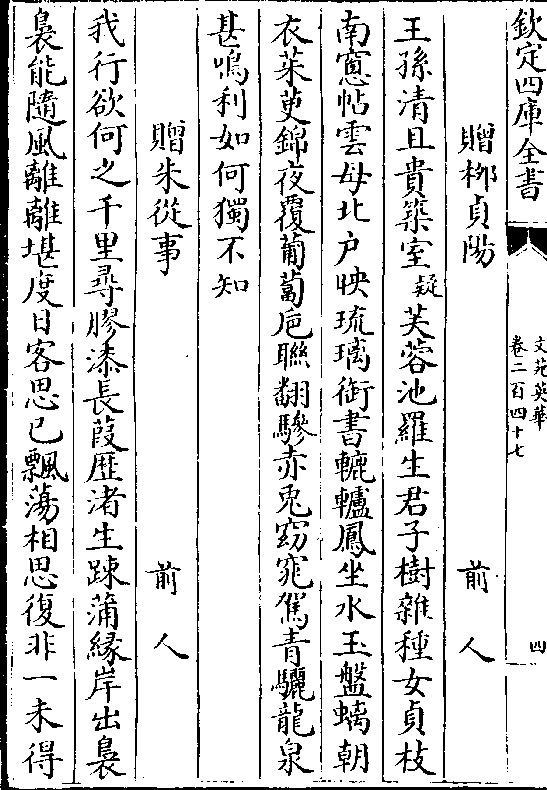 欽定四庫全書
文苑英華
卷二百四十七
四
贈栁貞陽
前人
王孫清且貴築室疑芙蓉池羅生君子樹雜種女貞枝
南窻帖雲母北户映琉璃銜書轆轤鳳坐水玉盤螭朝
衣茱萸錦夜覆葡萄巵聯翻驂赤兎窈窕駕青驪龍泉
甚鳴利如何獨不知
贈朱從事
前人
我行欲何之千里尋膠漆長葭歴渚生踈蒲緣岸出裊
裊能隨風離離堪度日客思已飄蕩相思復非一未得